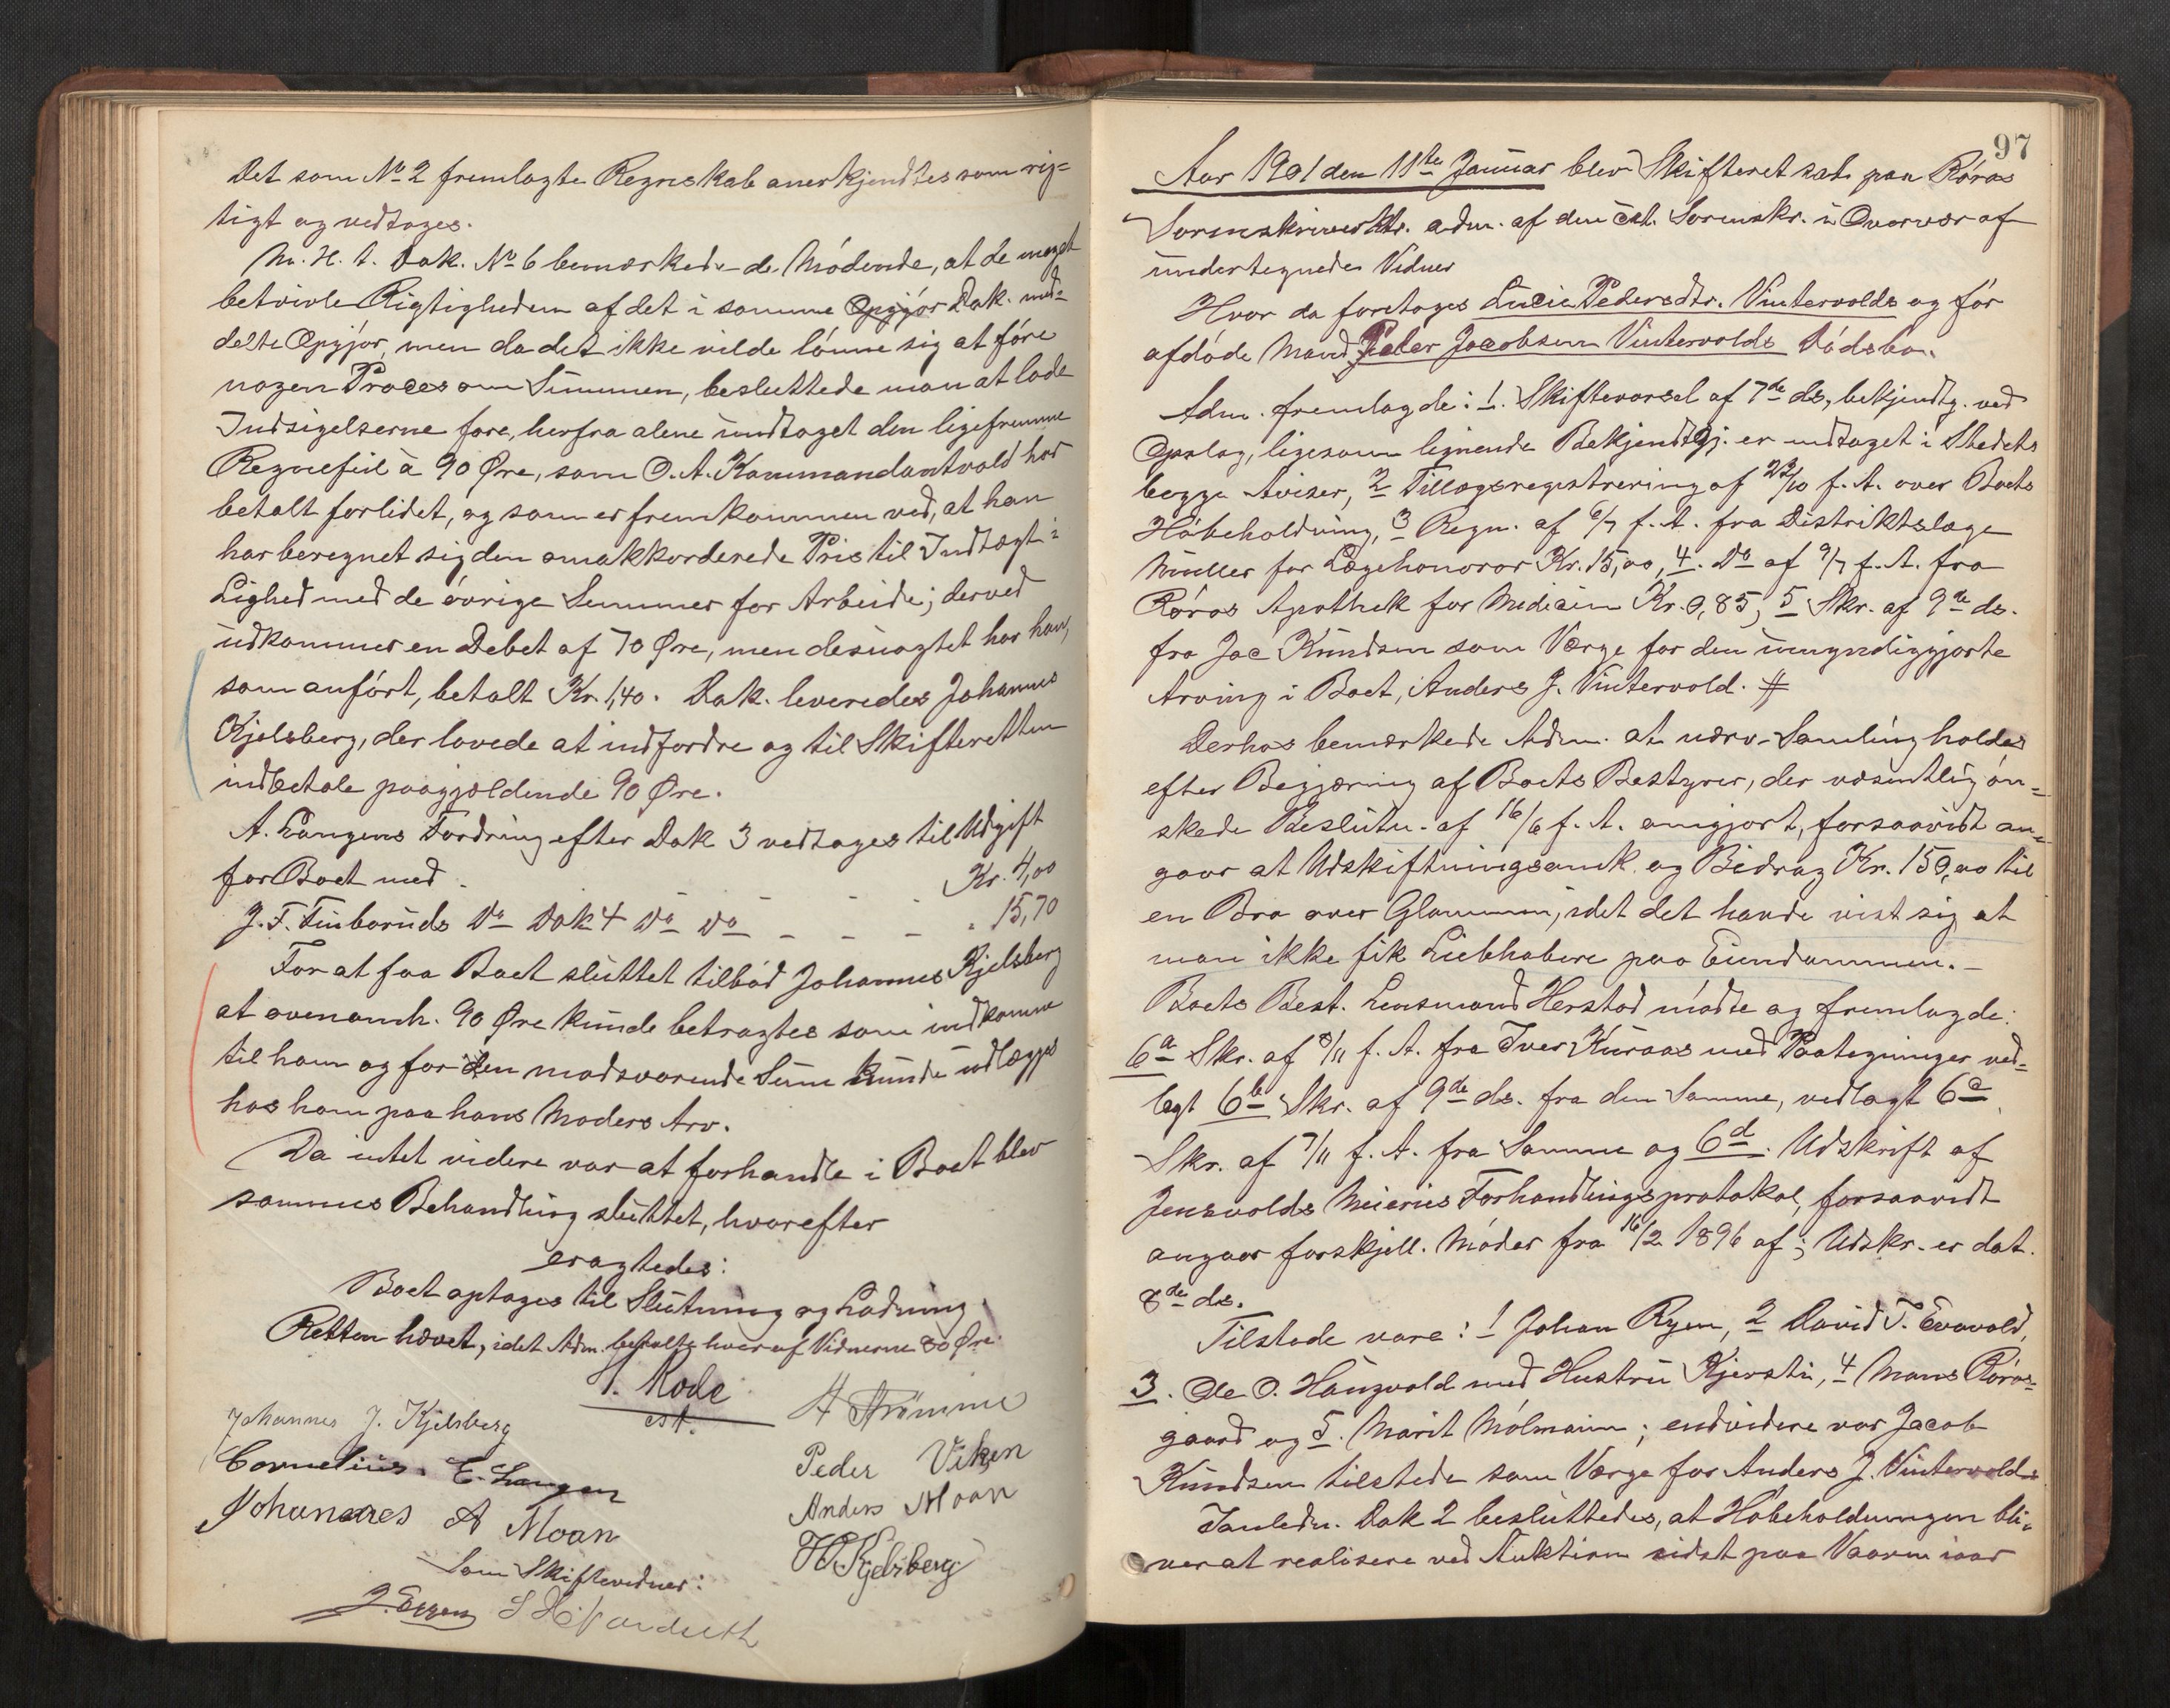 Det som No 2 fremlagte Regnskab anerkjendtes som rig=
tigt og vedtages.
M. H. t. Dok. No 6 bemærkede de Mødende, at de meget
betvivle Rigtigheden af det i samme Opgjør Dok. med=
delte Opgjør, men da det ikke vilde lønne sig at føre
nogen Proces om Summen, besluttede man at lade
Indsigelserne fare, herfra alene undtaget den ligefremme
Regnefeil à 90 Øre, som O. A. Kommandantvold har
betalt forlidet, og som er fremkommen ved, at han
har beregnet sig den omakkorderede Pris til Indtægt i
Lighed med de øvrige Summer for Arbeide; derved
udkommer en Debet af 70 Øre, men desuagtet har han,
som anført, betalt Kr. 1,40. Dok. leveredes Johannes
Kjelsberg, der lovede at indfordre og til Skifteretten
indbetale paagjældende 90 Øre.
A. Langens Fordring efter Dok 3 vedtages til Udgift
for Boet med - Kr. 4,00
J. F. Finboruds Do Dok 4 Do Do - - - " 15,70
For at faa Boet sluttet tilbød Johannes Kjelsberg
at ovenomh. 90 Øre kunde betragtes som indkomne
til ham og for den modsvarende Sum kunde udlægges
hos ham paa hans Moders Arv.
Da intet videre var at forhandle i Boet blev
sammes Behandling sluttet, hvorefter
eragtedes:
Boet optages til Slutning og Lodning.
Retten hævet, idet Adm. betalte hver af Vidnerne 80 Øre.
T. Rode
cst.
Johannes J. Kjelsberg
Cornelius E. Langen
Johannes A Moan
H Strømme
Peder Viken
Anders Moan
H Kjelsberg
Som Skiftevidner:
J. Eggen
97
Aar 1901 den 11te Januar blev Skifteret sat paa Røros
Sorenskriverktr. adm. af den cst. Sorenskr. i Overvær af
undertegnede Vidner
Hvor da foretoges Lucie Pedersdtr. Vintervolds og før
afdøde Mand Peder Jacobsen Vintervolds Dødsbo.
Adm. fremlagde: 1. Skiftevarsel af 7de ds, bekjendtg. ved
Opslag, ligesom lignende Bekjendtgj. er indtaget i Stedets
begge Aviser, 2 Tillægsregistrering af 22/10 f. A. over Boets
Høbeholdning, 3 Regn. af 6/7 f. A. fra Distriktslæge
Müller for Lægehonorar Kr. 15,00, 4. Do af 9/7 f. A. fra
Røros Apothek for Medicin Kr. 0,85, 5 Skr. af 9de ds.
fra Jac Knudsen som Værge for den umyndiggjorte
Arving i Boet, Anders J. Vintervold. #
Derhos bemærkede Adm. at nærv. Samling holdes
efter Begjæring af Boets Bestyrer, der væsentlig øn=
skede Beslutn. af 16/6 f. A. omgjort, forsaavidt an=
gaar at Udskiftningsomk. og Bidrag Kr. 150,00 til
en Bro over Glommen, idet det havde vist sig at
man ikke fik Liebhabere paa Eiendommen. -
Boets Best. Lensmand Herstad mødte og fremlagde:
6a Skr. af 8/11 f. A. fra Iver Kuraas med Paategninger ved=
lagt 6b Skr. af 9de ds. fra den Samme, vedlagt 6c
Skr. af 7/11 f. A. fra Samme og 6d. Udskrift af
Jensvolds Meieries Forhandlingsprotokol, forsaavidt
angaar forskjell. Møder fra 16/2 1896 af; Udskr. er dat.
8de ds.
Tilstede vare: 1 Johan Ryen, 2 David T. Evavold,
3. Ole O. Haugvold med Hustru Kjersti, 4 Mons Røros=
gaard og 5. Marit Mølmann; endvidere var Jacob
Knudsen tilstede som Værge for Anders J. Vintervold.
I anledn. Dok 2 besluttedes, at Høbeholdningen bli=
ver at realisere ved Auktion sidst paa Vaaren iaar